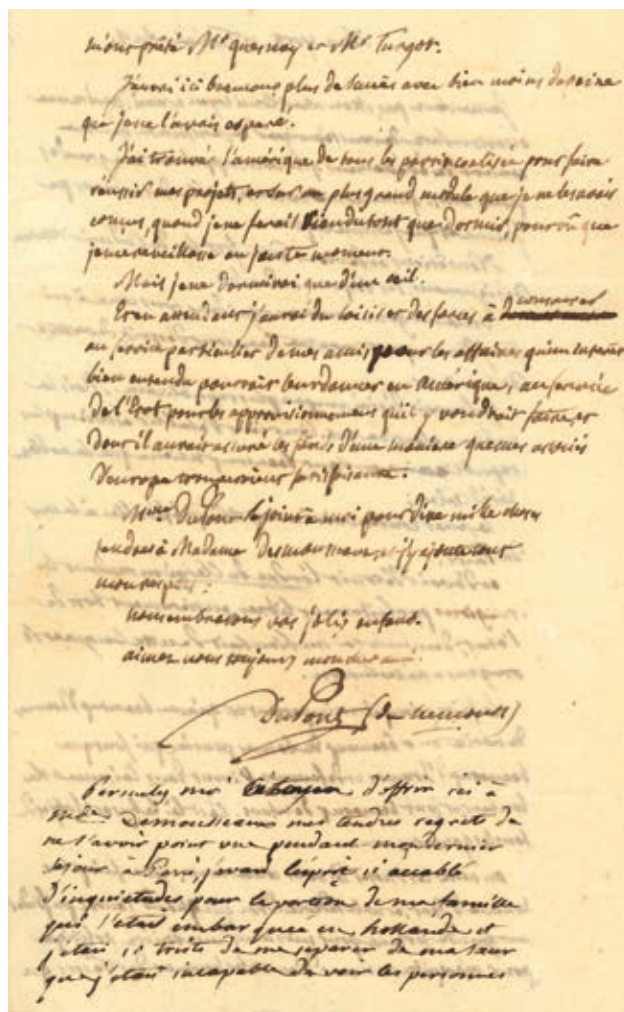 m'ont prêté Mr. quesnay et Mr. Turgot.
J'aurai ici beaucoup plus de succès avec bien moins de peine
que je ne l'avais espéré.
J'ai trouvé l'amérique de tous les partis coalisée pour faire
réussir mes projets, et sur un plus grand module que je ne les avais
conçus, quand je ne ferais rien du tout que dormir, pourvû que
je me reveillasse au juste moment.
Mais je ne dormirai que d'un œil.
Et en attendant j'aurai du loisir et des forces à consacrer
au service particulier de mes amis pour les affaires qu'un interêt
bien entendu pourrait leur donner en Amérique, au service
de l'Etat pour les approvisionnemens qu'il y voudrait faire, et
dont il aurait assuré les fonds d'une maniere que mes associés
d'europe trouveraient satisfaisante.
Mme. DuPont se joint à moi pour dire mille choses
tendres à Madame et j'y ajoute tout
mon respect.
nous embrassons vos jolis enfans.
aimez nous toujours mon cher
DuPont (de nemours)
Permetez moi Citoyen d'offrir ici à
mde. Demousseau mes tendres regrets de
ne l'avoir point vue pendant mon dernier
sejour à Paris, j'avais l'esprit si accablé
d'inquietudes pour la portion de ma famille
qui s'était embarquée en hollande et
j'étais si triste de me separer de ma sœur
que j'étais incapable de voir les personnes